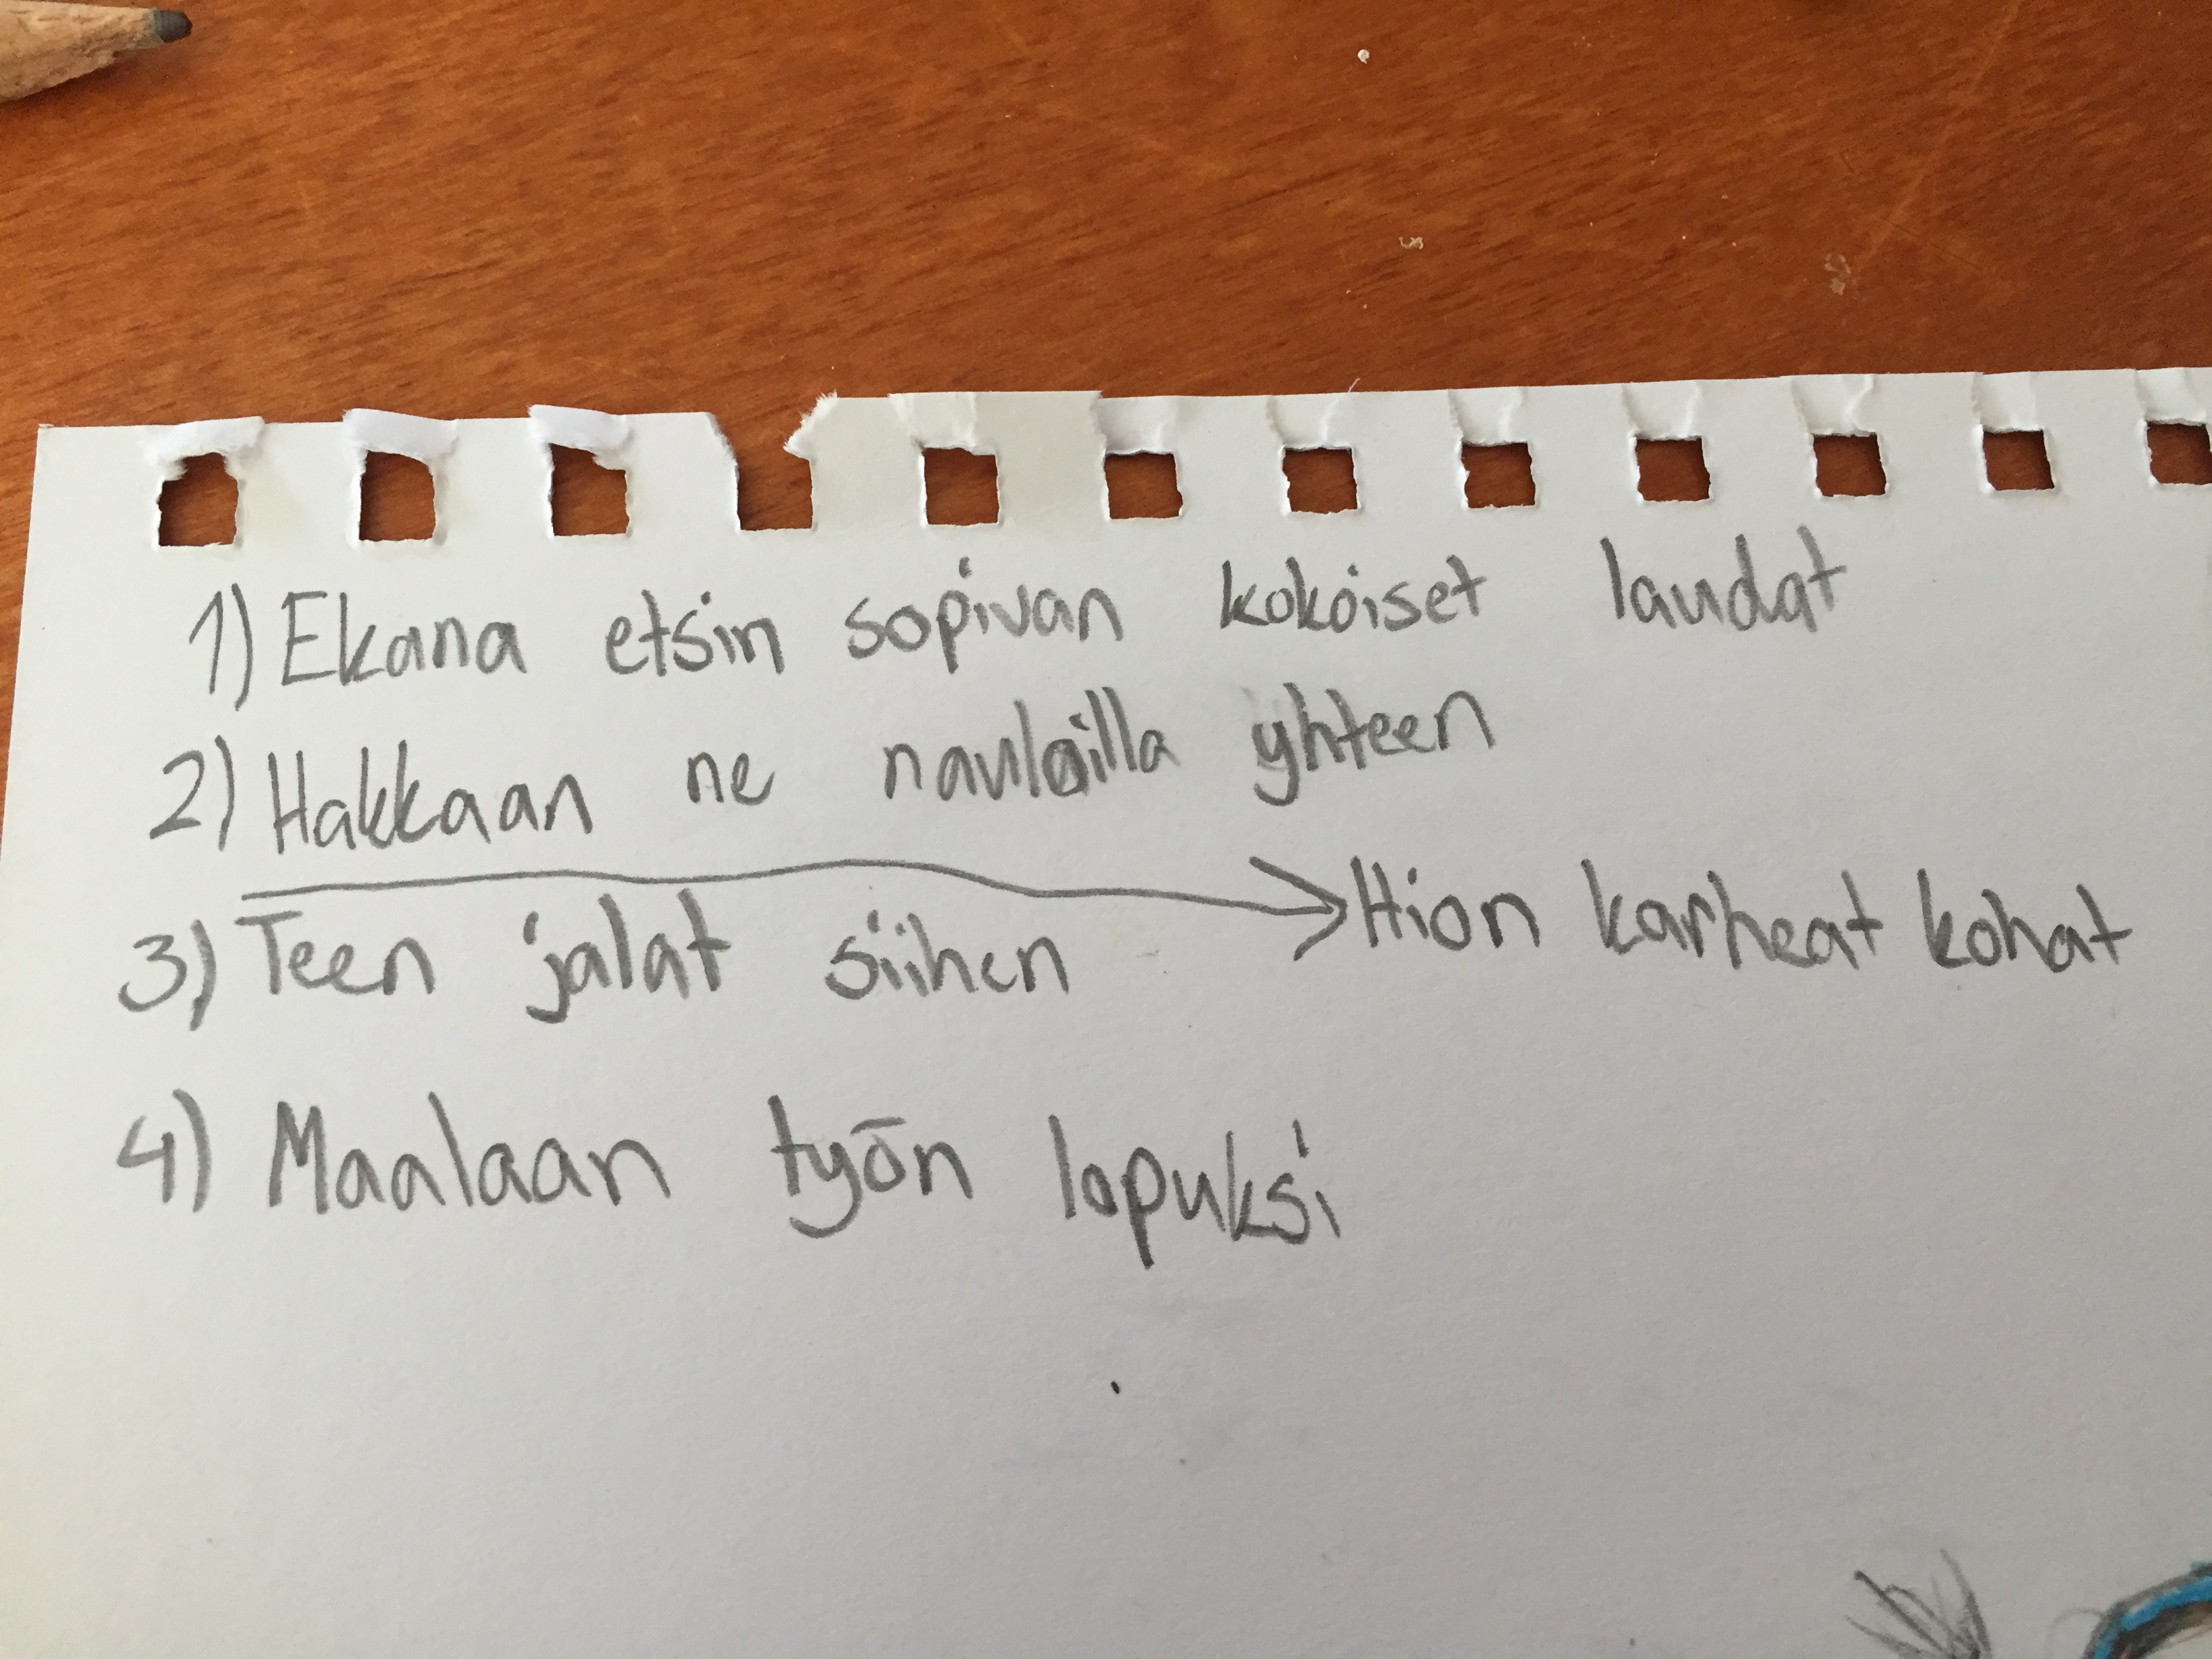 1) Ekana etsin sopivan kokoiset laudat
2) Hakkaan ne nauloilla yhteen
→ Hion karheat kohat
3) Teen jalat siihen
4) Maalaan työn lopuksi